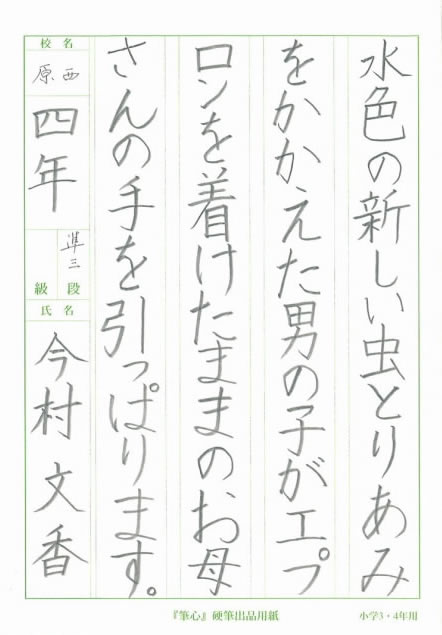 水色の新しい虫とりあみ
をかかえた男の子がエプ
ロンを着けたままのお母
さんの手を引っぱります。
校名
西原
四年
段級
準三
氏名
今村文香
『筆心』硬筆出品用紙
小学3・4年用